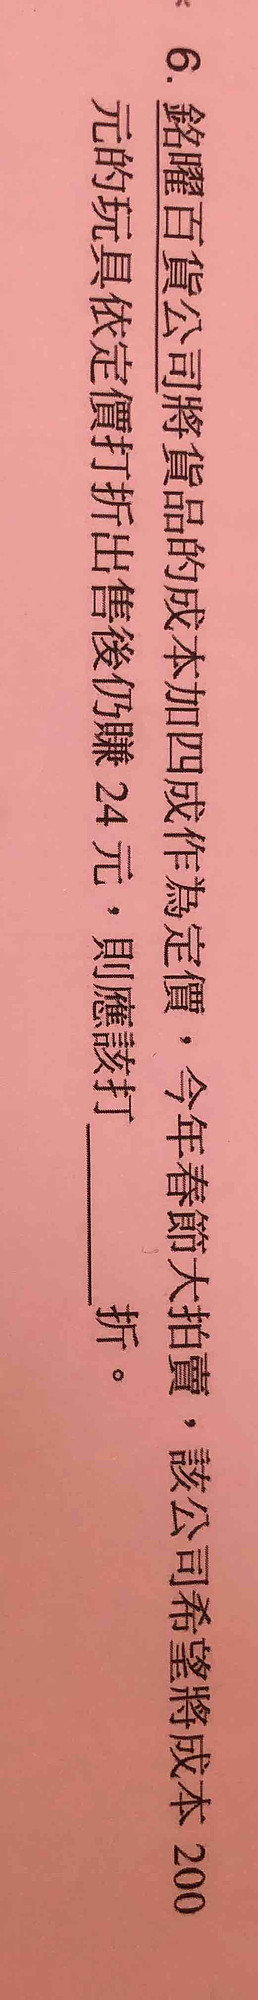 6. 銘曜百貨公司將貨品的成本加四成作為定價，今年春節大拍賣，該公司希望將成本 200
元的玩具依定價打折出售後仍賺 24 元，則應該打＿＿＿＿折。